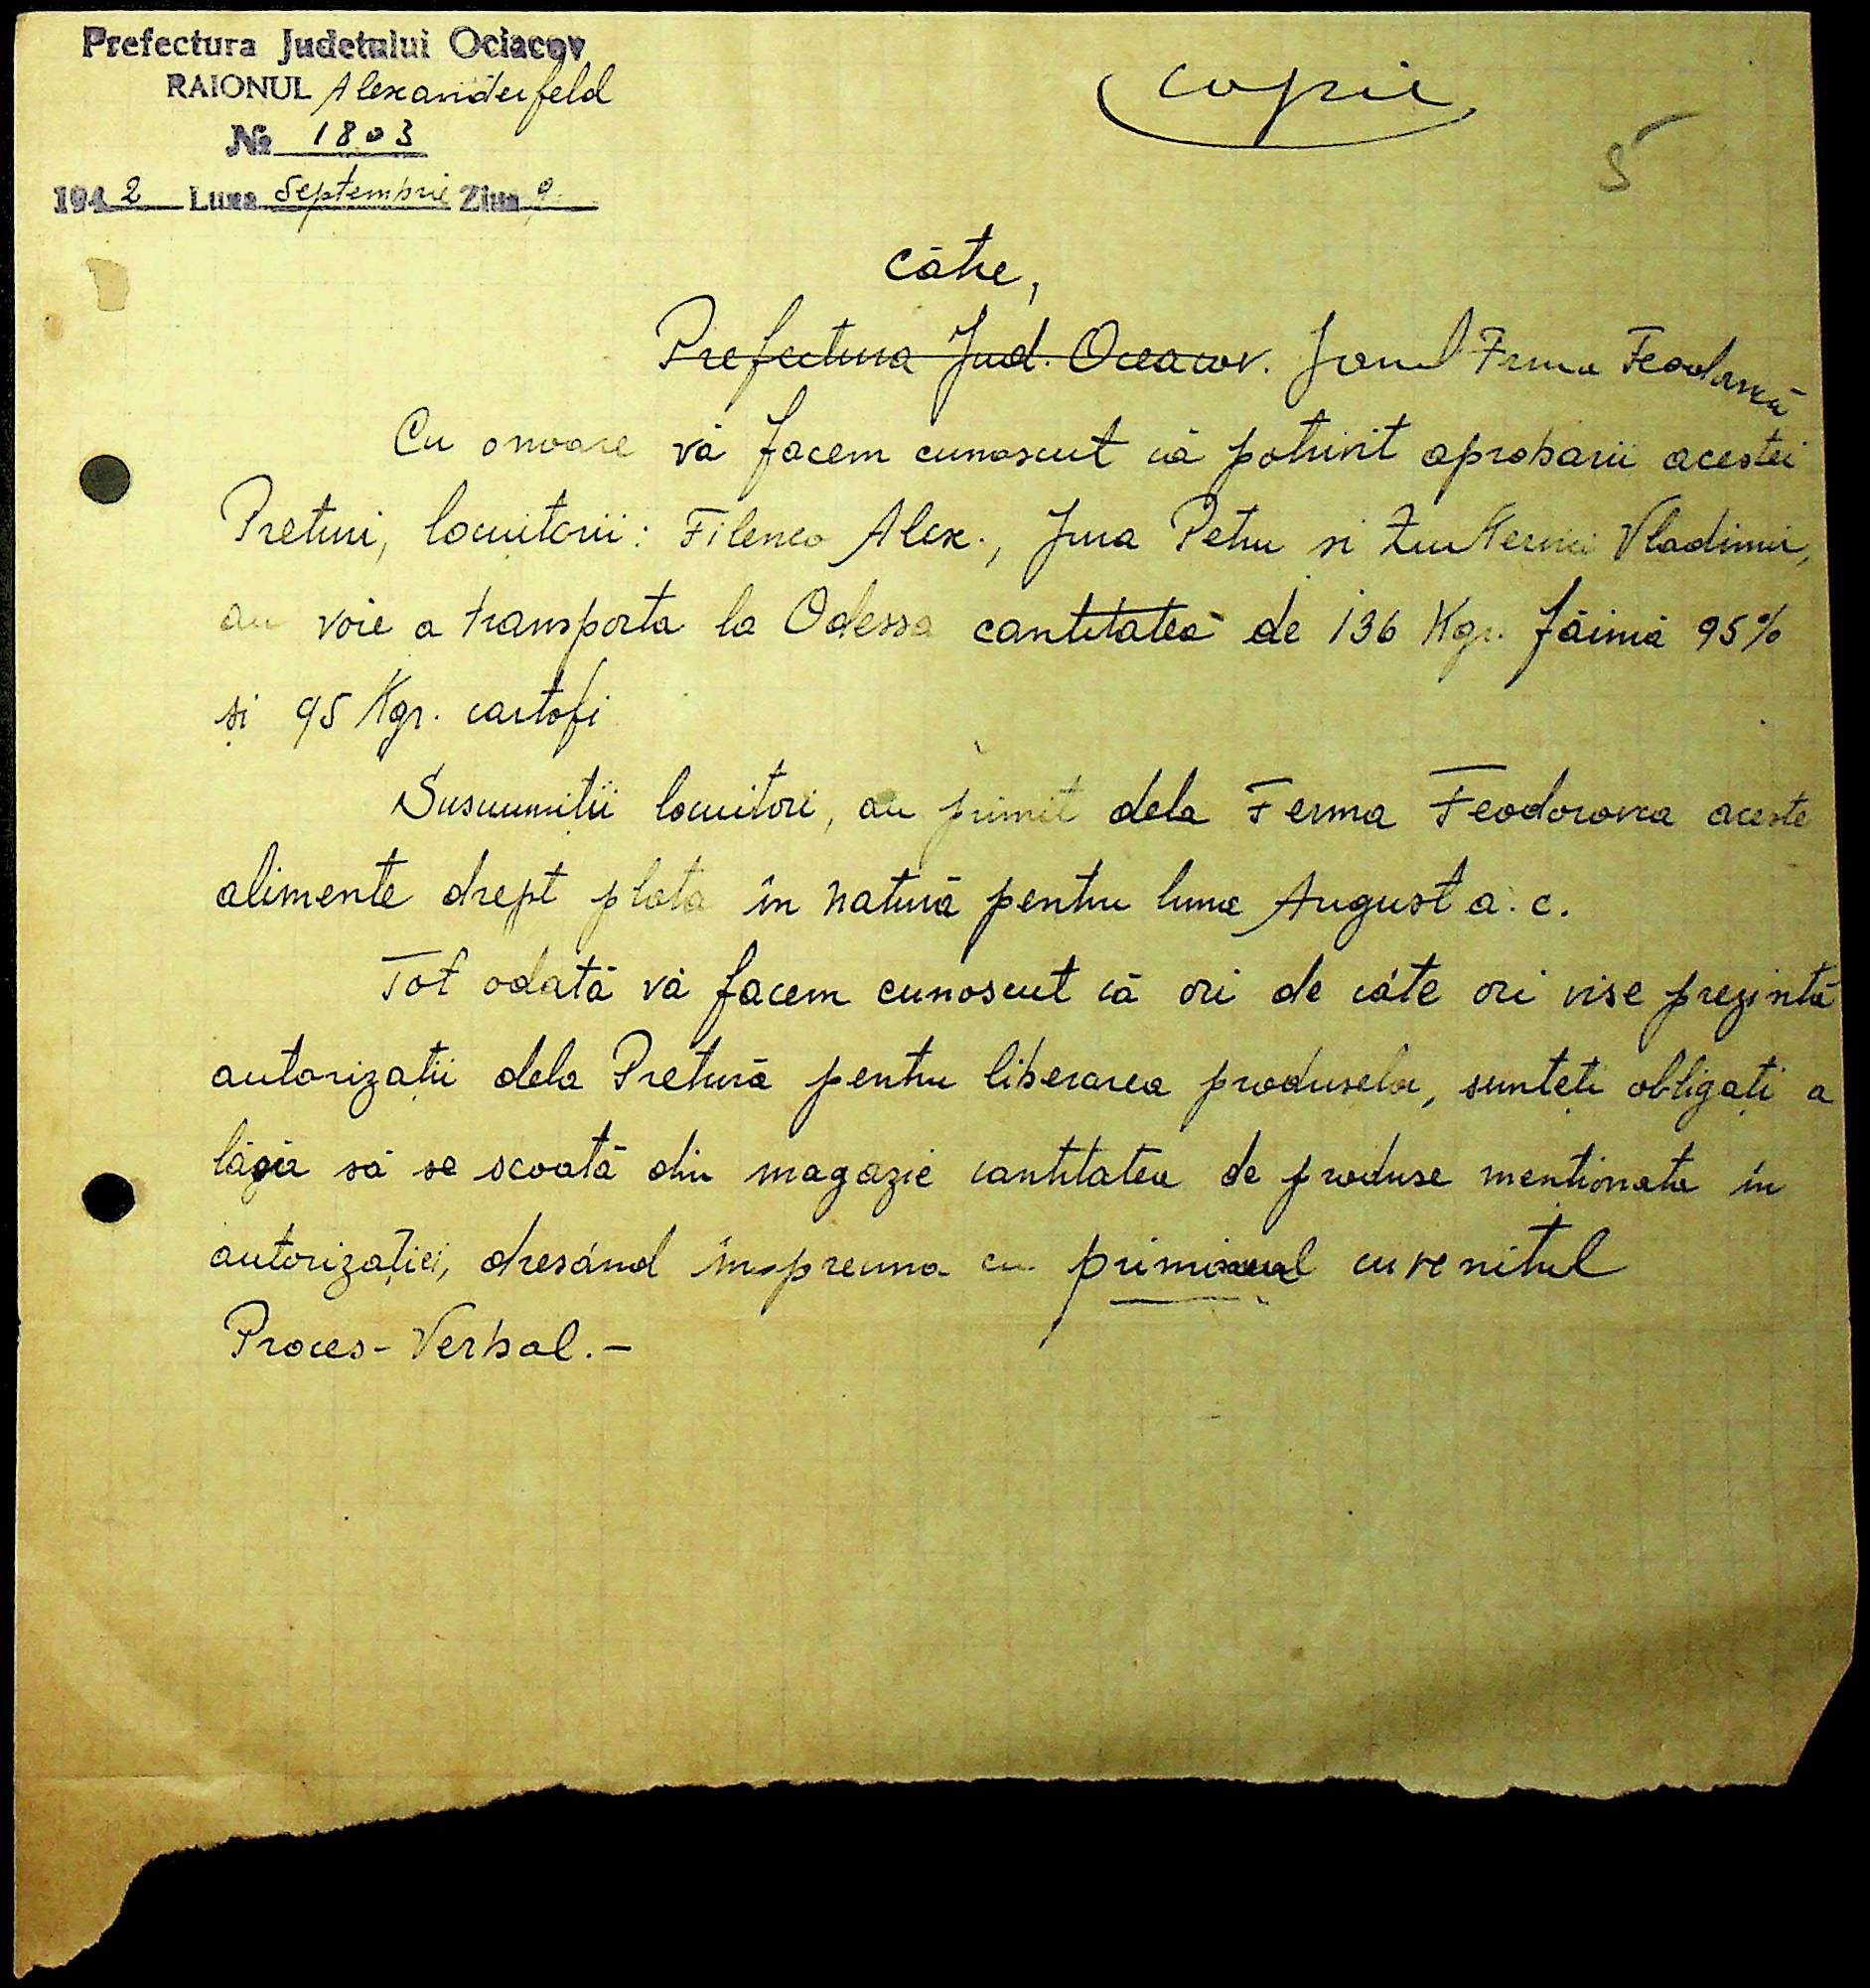 Prefectura Judetului Ociacov
RAIONUL Alexanderfeld
№ 1803
1942 Luna Septembrie Ziua 9
copie
5
Către,
Prefectura Jud. Oceacov. Ferma
Cu onoare vă facem cunoscut că potrivit aprobarii acestei
Preturi, locuitorii: Filenco Alex., Jura Petru si Vladimir,
au voie a transporta la Odessa cantitatea de 136 Kgr. făină 95%
și 95 Kgr. cartofi
Susnumiții locuitori, au primit dela Ferma Feodorovca aceste
alimente drept plata în natură pentru luna August a. c.
Tot odată vă facem cunoscut că ori de câte ori vise prezintă
autorizații dela Pretură pentru liberarea produselor, sunteți obligați a
lăsa să se scoată din magazie cantitatea de produse mentionata in
autorizației, dresând împreuna cu cuvenitul
Proces-Verbal.-